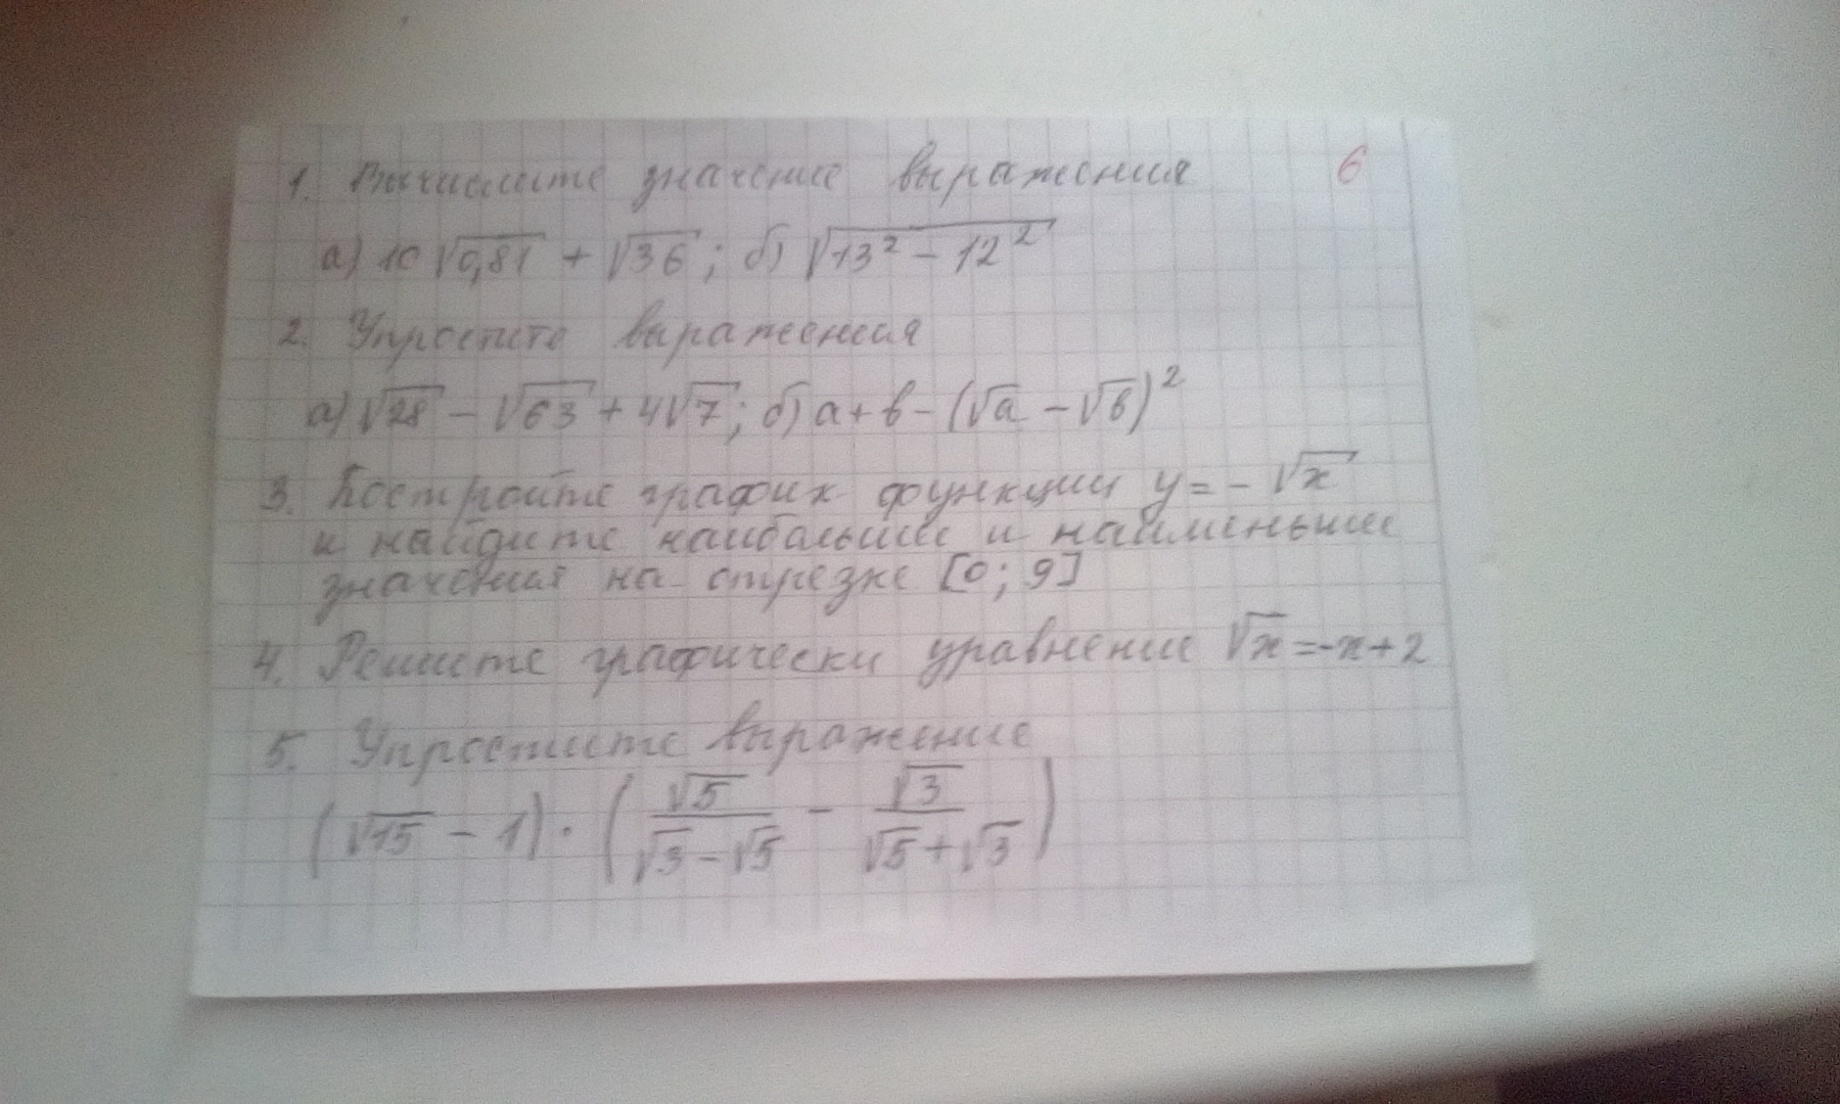 1. Вычислите значение выражения 6
а) 10√0,81 + √36; б) √13² - 12²
2. Упростите выражения
а) √28 - √63 + 4√7; б) a + b - (√a - √b)²
3. Постройте график функции y = - √x
и найдите наибольшее и наименьшее
значения на отрезке [0; 9]
4. Решите графически уравнение √x = -x + 2
5. Упростите выражение
(√15 - 1) · (√5/(√3 - √5) - √3/(√5 + √3))